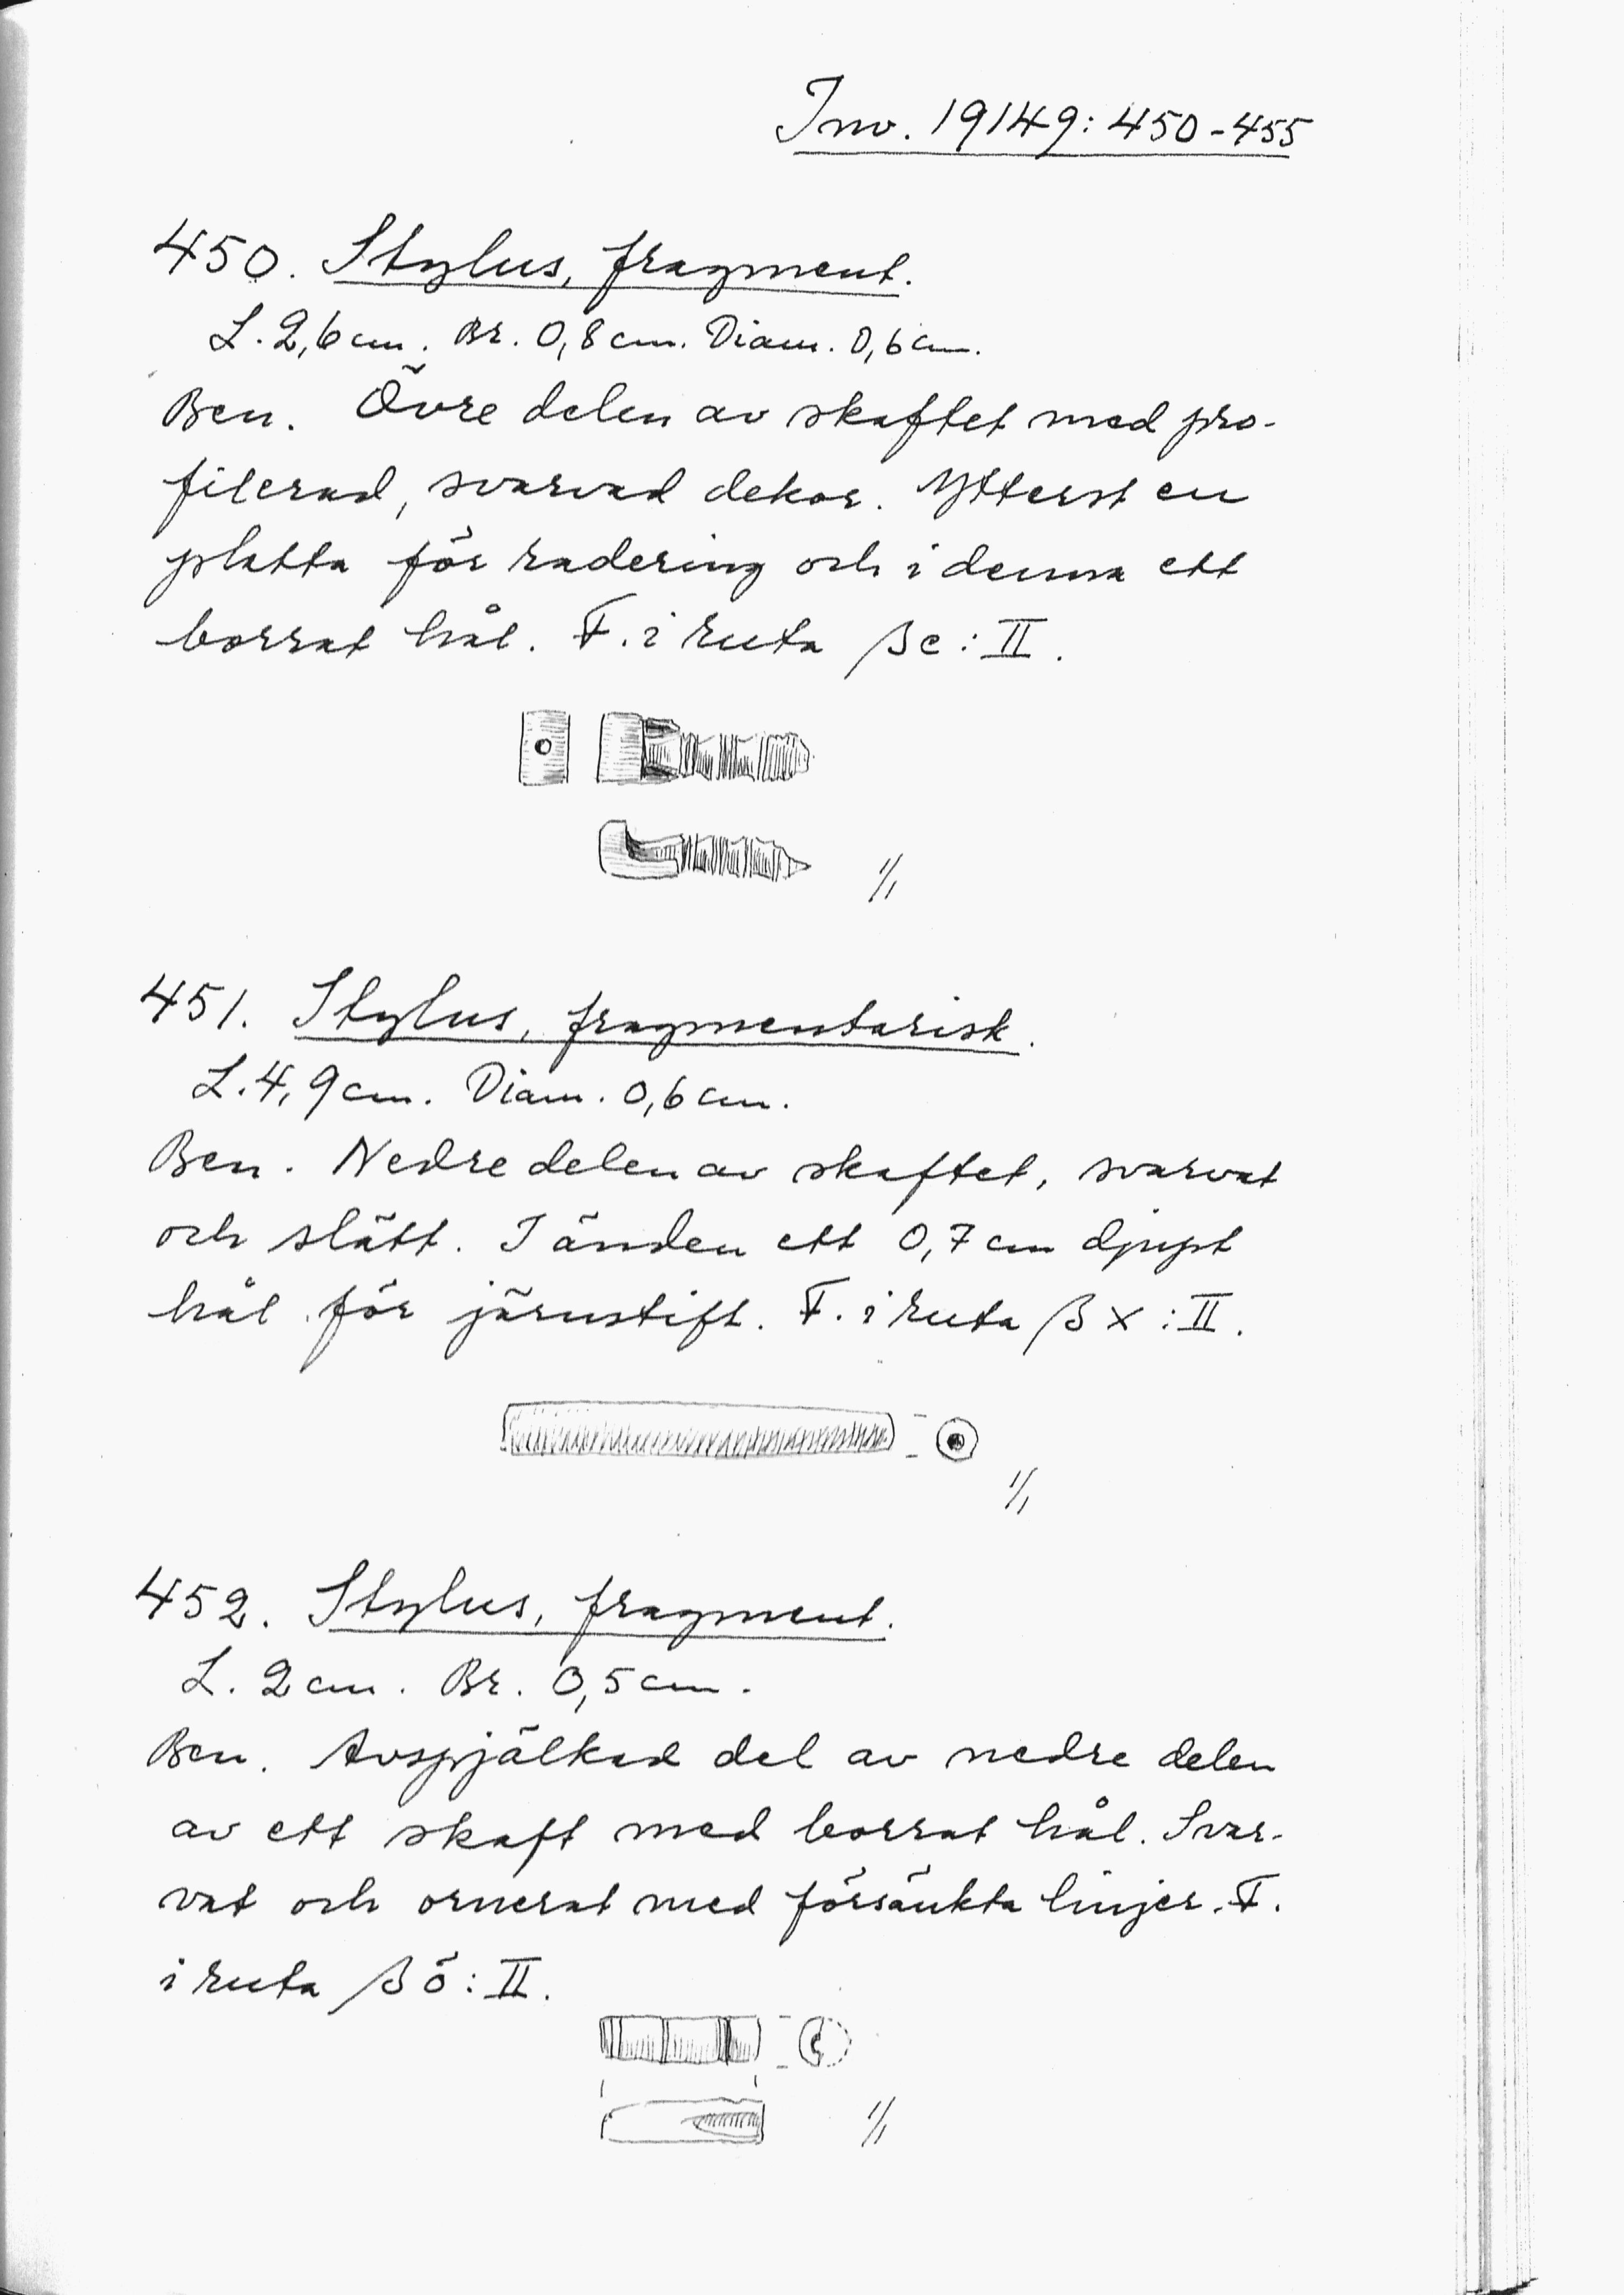 Inv. 19149: 450-455
450. Stylus, fragment.
L. 2,6 cm. Br. 0,8 cm. Diam. 0,6 cm.
Ben. Övre delen av skaftet med pro-
filerad, svarvad dekor. Ytterst en
platta för radering och i denna ett
borrat hål. F. i ruta βe: II.
1/1
451. Stylus, fragmentarisk.
L. 4,9 cm. Diam. 0,6 cm.
Ben. Nedre delen av skaftet, svarvat
och slätt. I änden ett 0,7 cm djupt
hål för järnstift. F. i ruta βx: II.
1/1
452. Stylus, fragment.
L. 2 cm. Br. 0,5 cm.
Ben. Avspjälkad del av nedre delen
av ett skaft med borrat hål. Svar-
vat och ornerat med försänkta linjer. F.
i ruta βö: II.
1/1